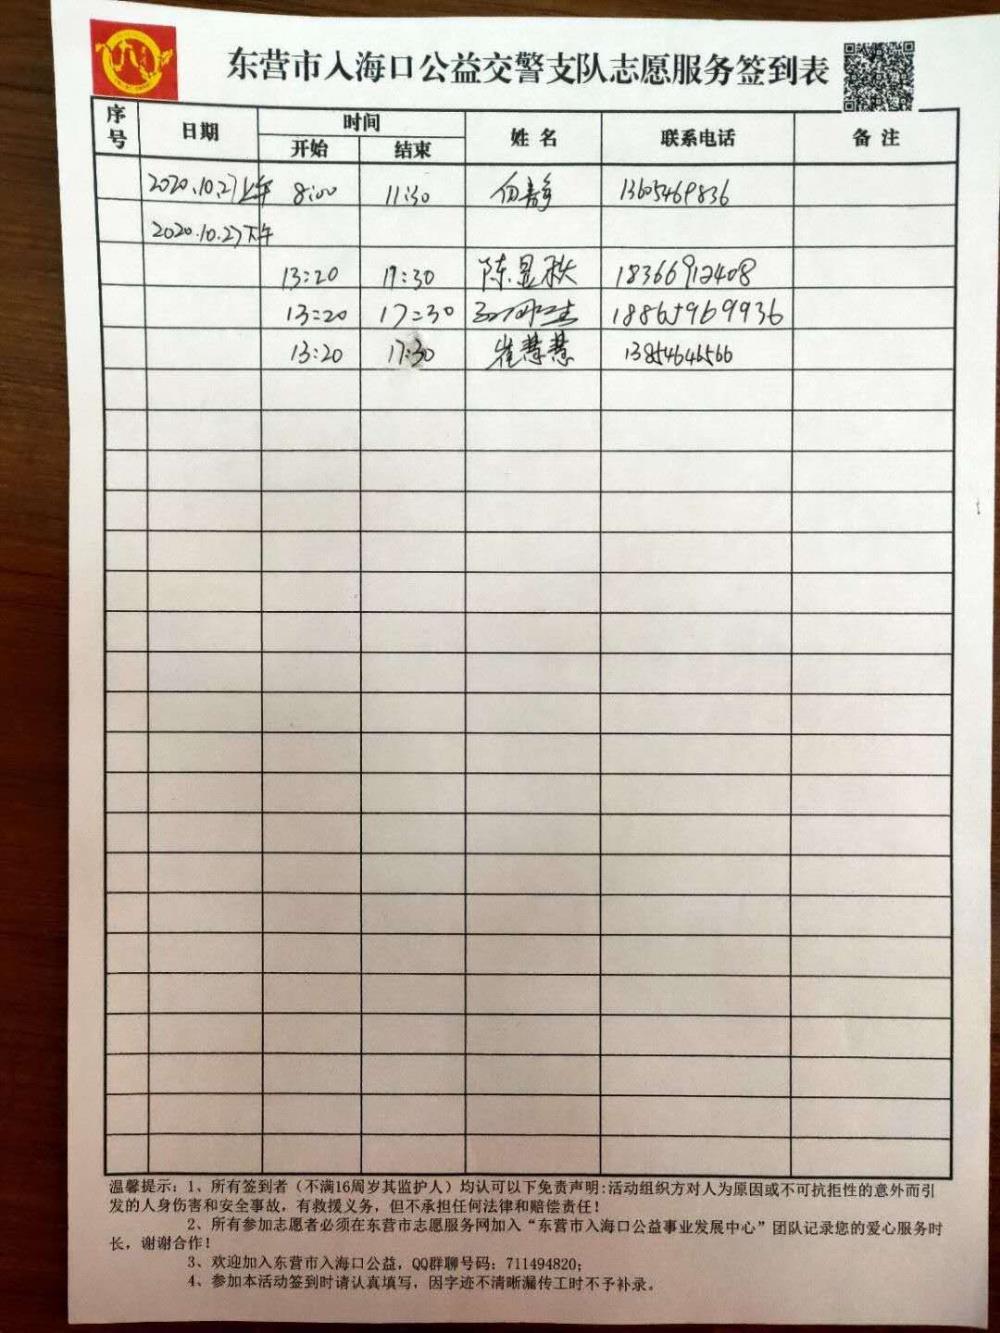 东营市入海口公益交警支队志愿服务签到表
序号 日期 时间 姓名 联系电话 备注
开始 结束
2020.10.27上午 8:00 11:30 13605469836
2020.10.27下午
13:20 17:30 陈昱秩 18366912408
13:20 17:30 18865969936
13:20 17:30 崔慧慧 13854646566
温馨提示：1、所有签到者（不满16周岁其监护人）均认可以下免责声明:活动组织方对人为原因或不可抗拒性的意外而引
发的人身伤害和安全事故，有救援义务，但不承担任何法律和赔偿责任！
2、所有参加志愿者必须在东营市志愿服务网加入“东营市入海口公益事业发展中心”团队记录您的爱心服务时
长，谢谢合作！
3、欢迎加入东营市入海口公益，QQ群聊号码：711494820；
4、参加本活动签到时请认真填写，因字迹不清晰漏传工时不予补录。